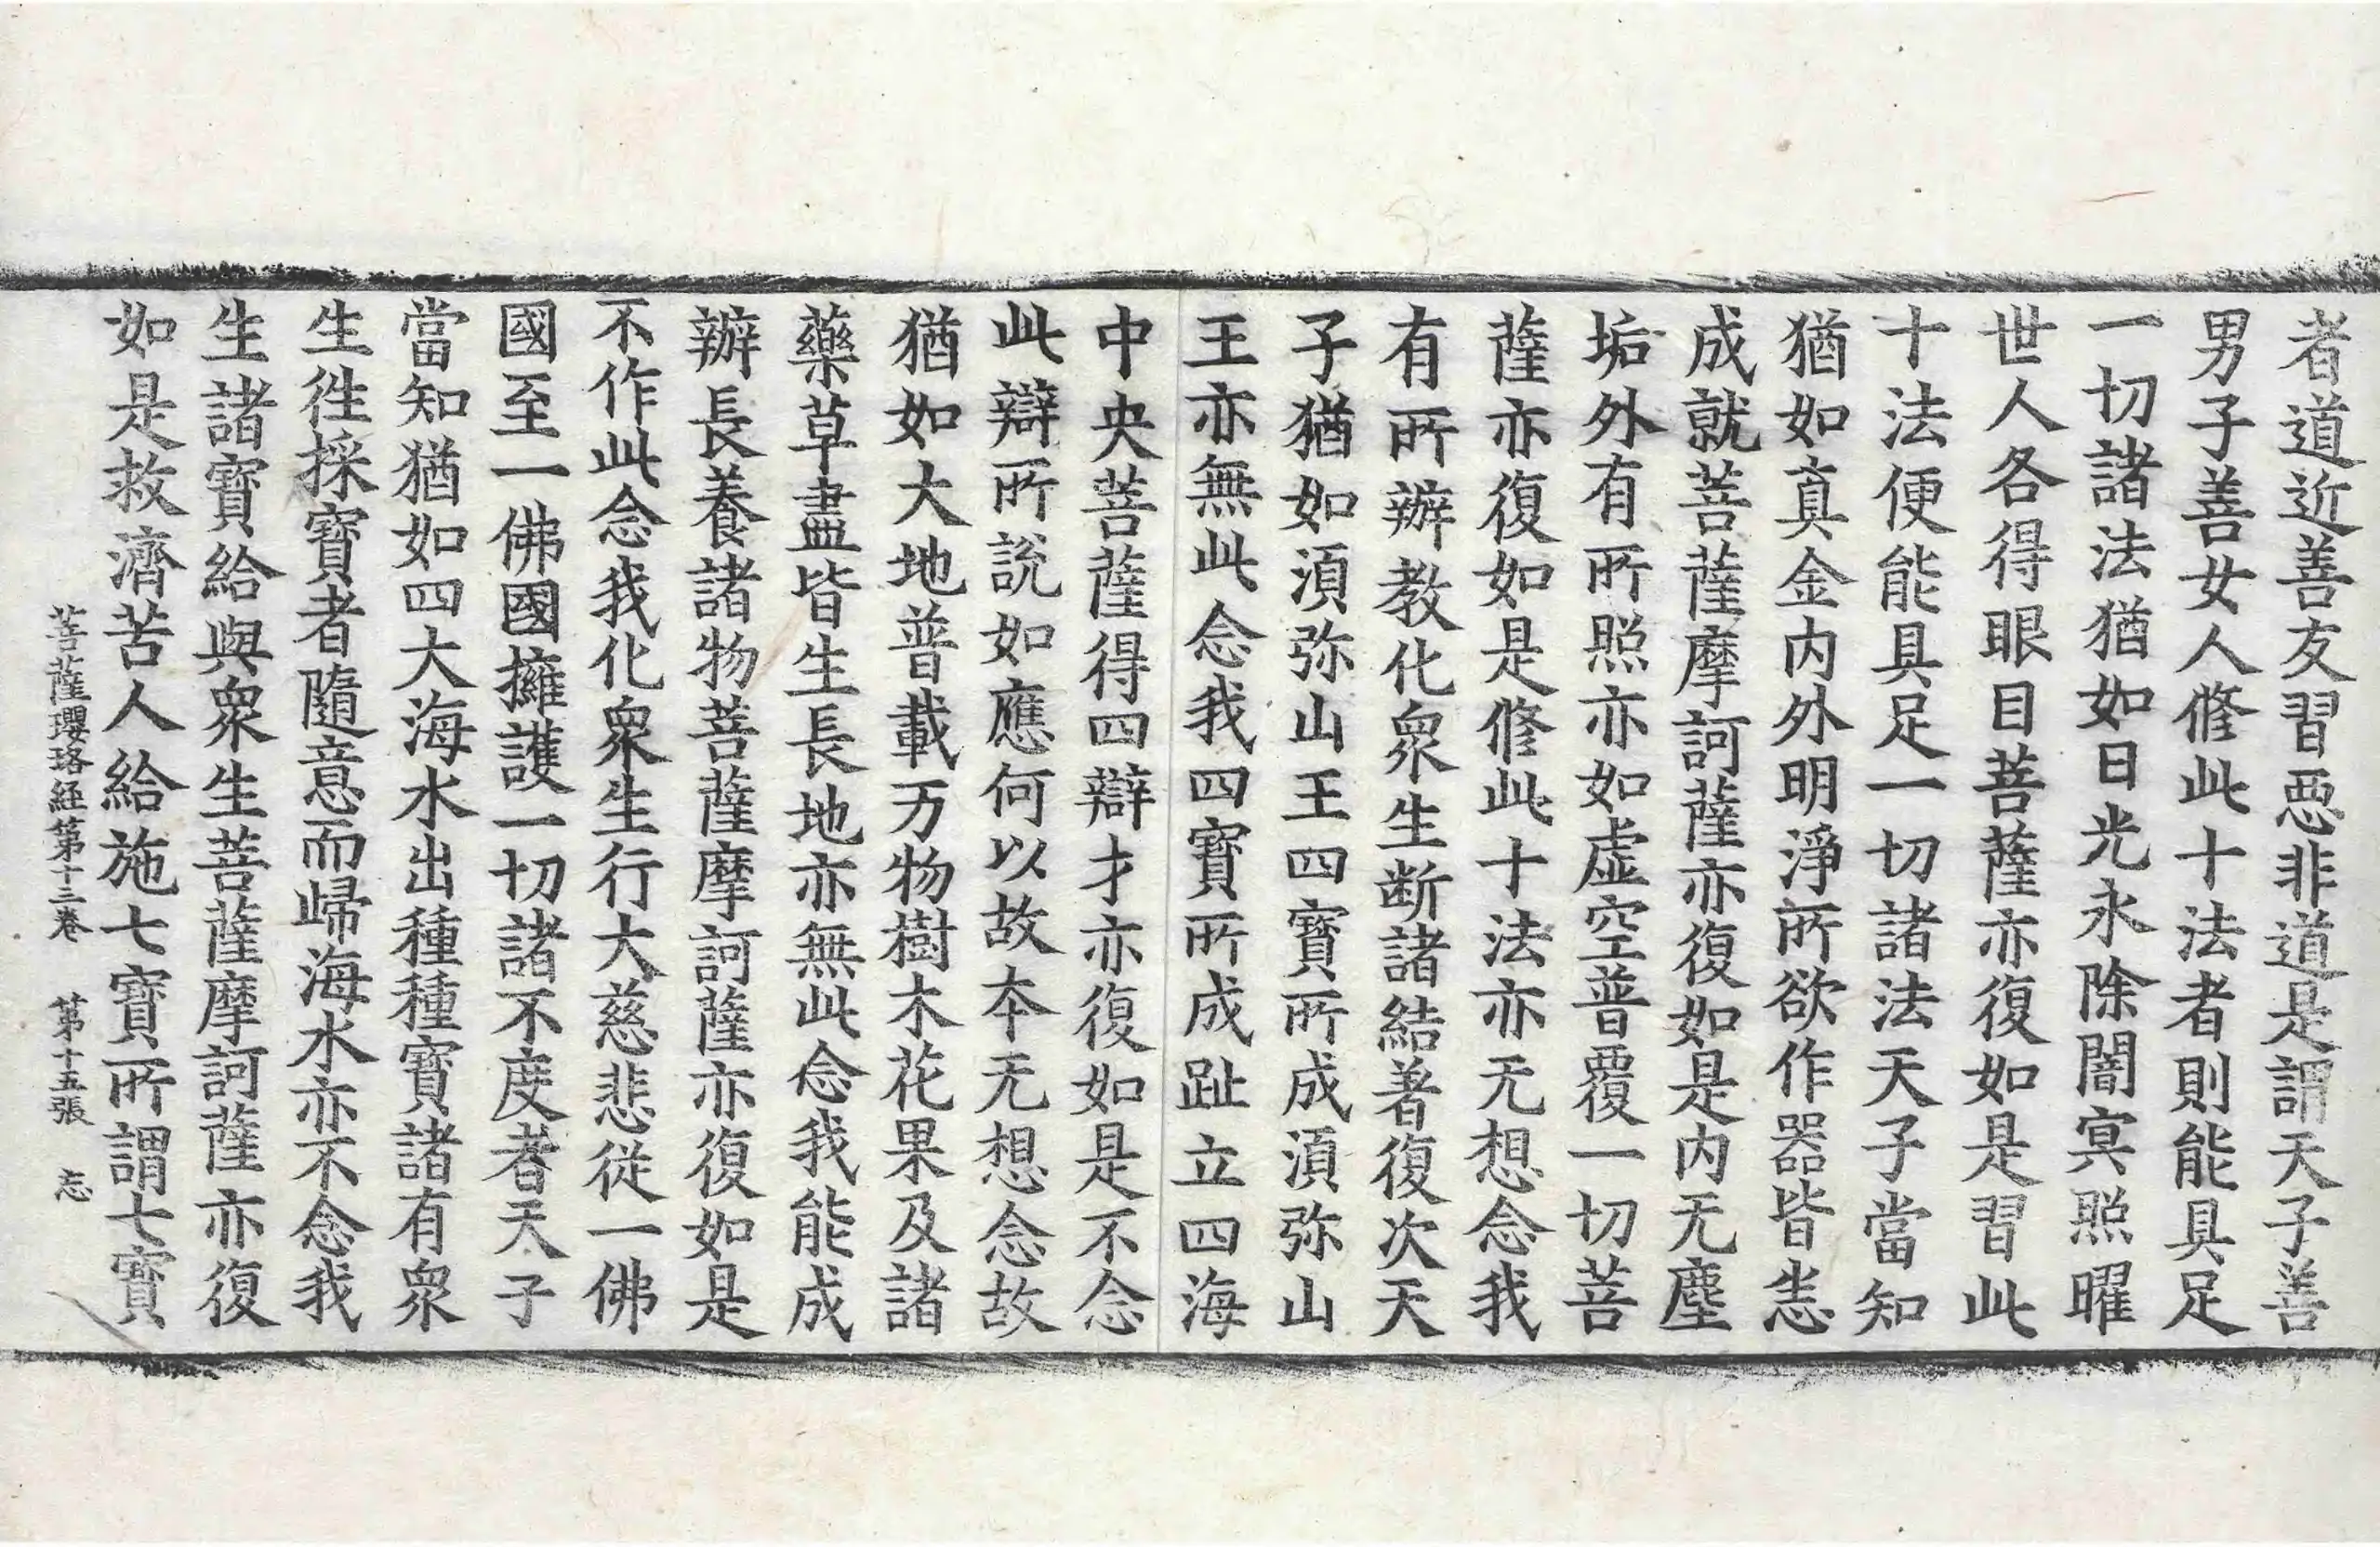 者道近善友習惡非道是謂天子善
男子善女人修此十法者則能具足
一切諸法猶如日光永除闇冥照曜
世人各得眼目菩薩亦復如是習此
十法便能具足一切諸法天子當知
猶如真金內外明淨所欲作器皆悉
成就菩薩摩訶薩亦復如是內无塵
垢外有所照亦如虛空普覆一切菩
薩亦復如是修此十法亦无想念我
有所辦教化眾生断諸結著復次天
子猶如湏弥山王四寶所成湏弥山
王亦無此念我四寶所成趾立四海
中央菩薩得四辯才亦復如是不念
此辯所說如應何以故本无想念故
猶如大地普載万物樹木花果及諸
藥草盡皆生長地亦無此念我能成
辦長養諸物菩薩摩訶薩亦復如是
不作此念我化眾生行大慈悲從一佛
國至一佛國擁護一切諸不度者天子
當知猶如四大海水出種種寶諸有眾
生往採寶者隨意而歸海水亦不念我
生諸寶給與眾生菩薩摩訶薩亦復
如是救濟苦人給施七寶所謂七寶
菩薩瓔珞経第十三卷 第十五張 忘